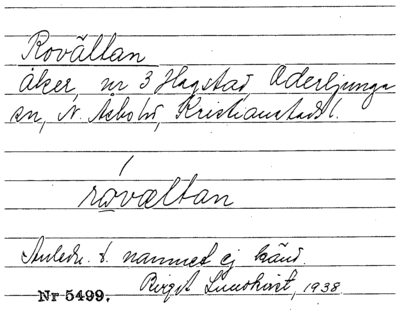 Rovältan
åker, nr 3 Hagstad, Oderljunga
sn, N. Åsbo hd, Kristianstads l.
rovæltan
Anledn. t. namnet ej känd.
Birgit Lundkvist, 1938.
Nr 5499.